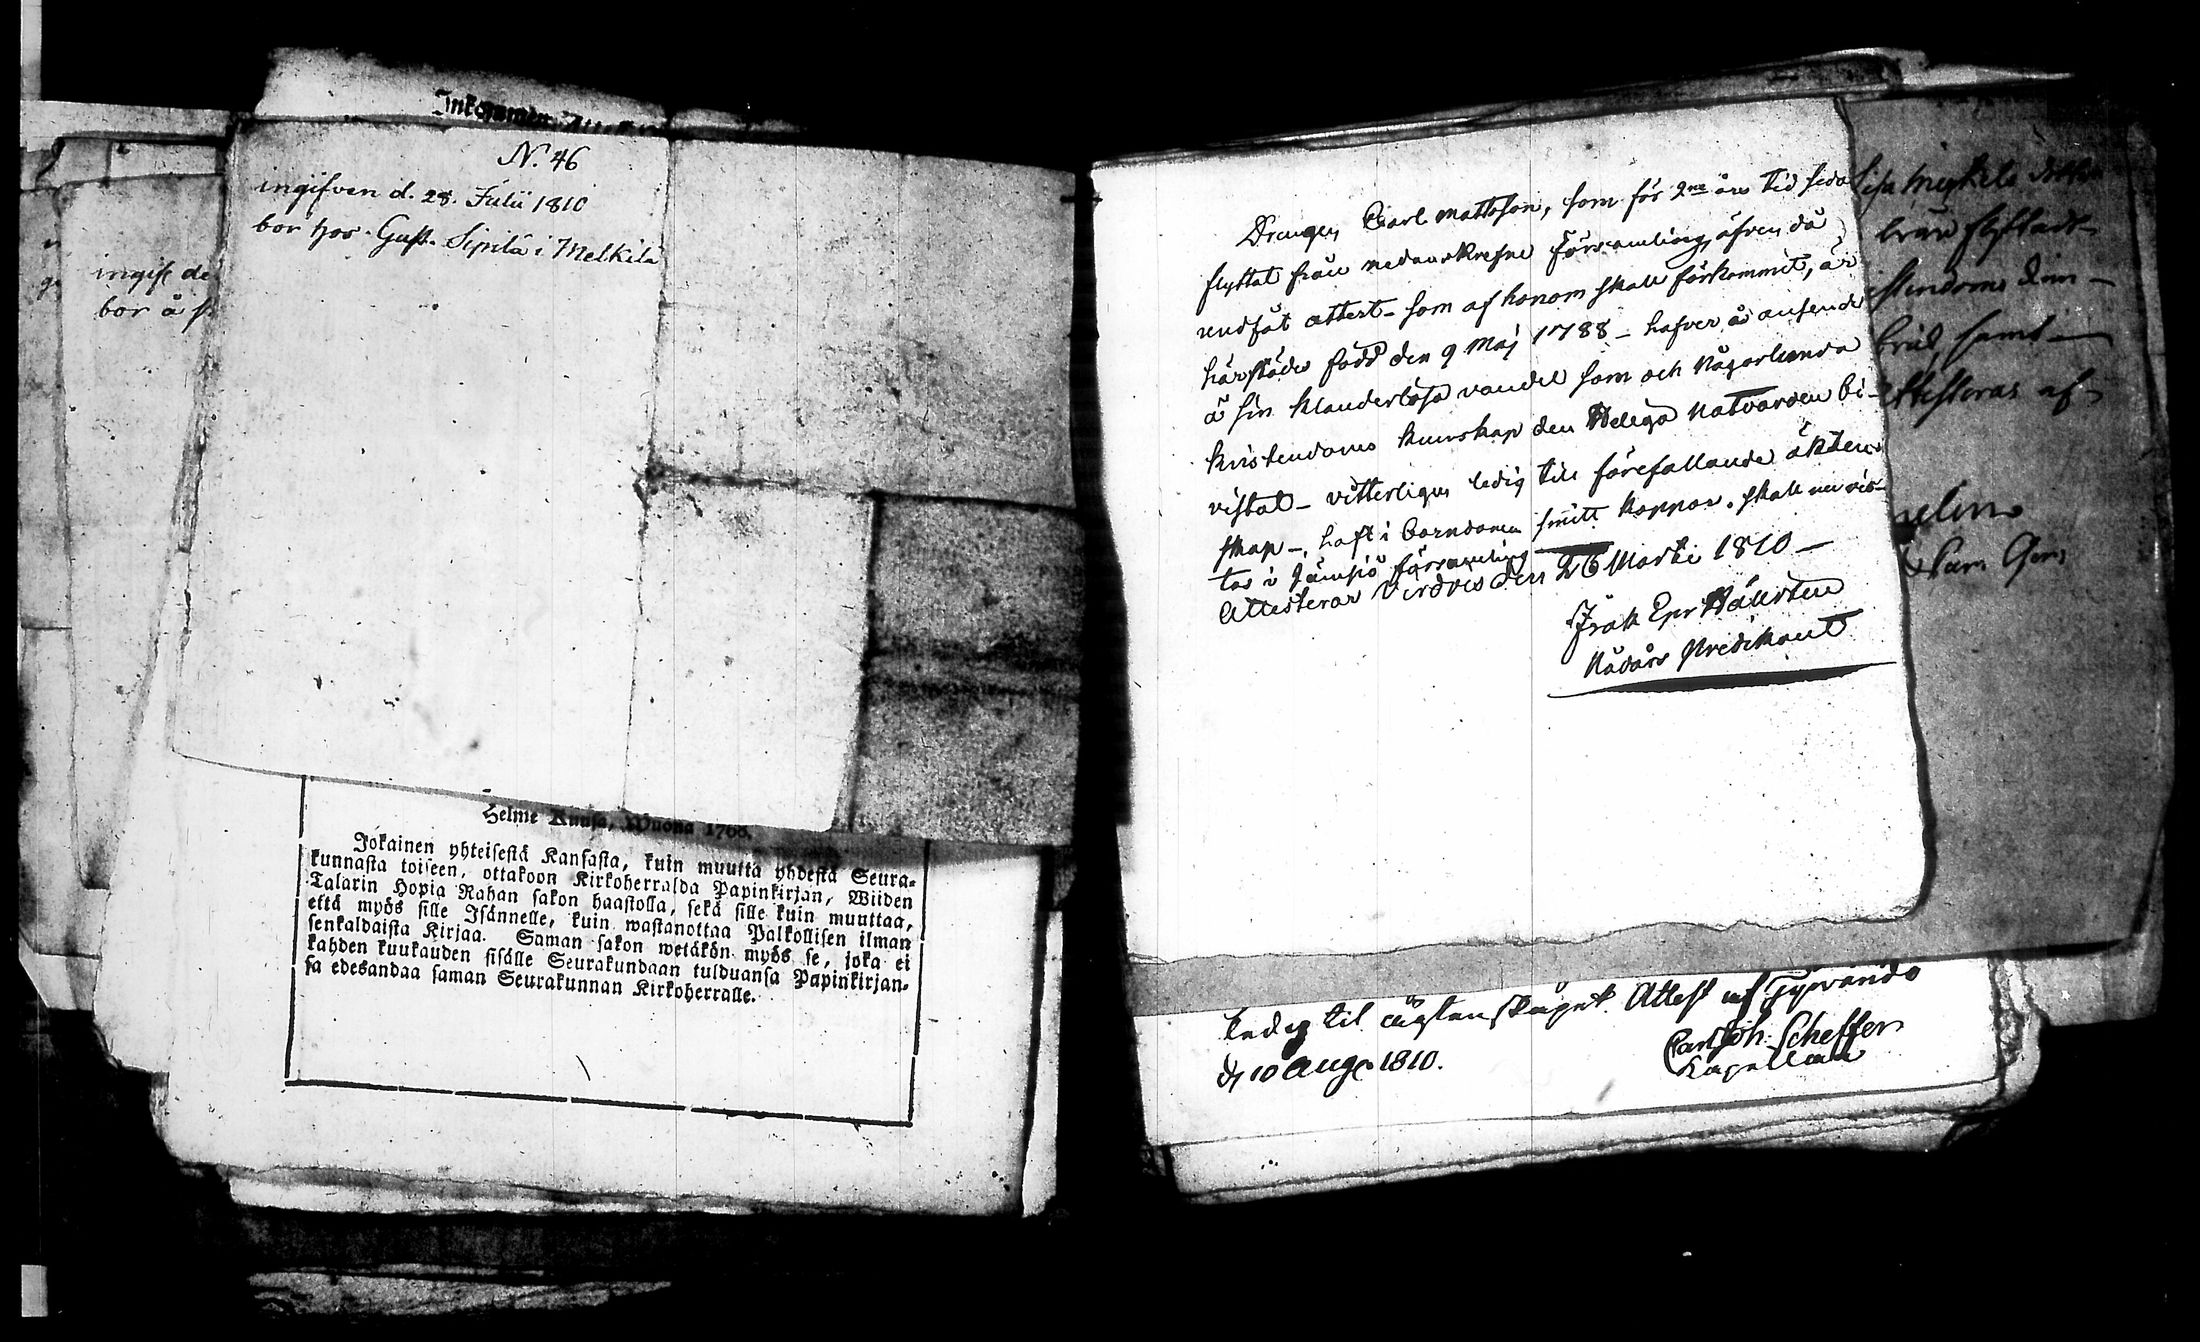 Inkommen
N. 46
ingifven d. 28. Julii 1810
bor hos Gust. Sipilä i Melkilä
ingift de
bor å
Helme Kuusa, Wuona 1766.
Jokainen yhteisestä Kansasta, kuin muutta yhdestä Seura-
kunnasta toiseen, ottakoon Kirkoherralda Papinkirjan, Wiiden
Talarin Hopia Rahan sakon haastolla, sekä sille kuin muuttaa,
että myös sille Isännelle, kuin wastanottaa Palkollisen ilman
senkaldaista Kirjaa. Saman sakon wetäkön myös se, joka ei
kahden kuukauden sisälle Seurakundaan tulduansa Papinkirjan-
sa edesandaa saman Seurakunnan Kirkoherralle.
Drengen Carl Mattsson, som för 2ne års tid seda
flyttat från nedanskrefne Församling, äfven då
undfåt attest - som af honom skall förkommit, är
härstädes född den 9 Maj 1788 - hafver i anseende
å sin klanderlösa vandel som och någorlunda
kristendoms kunskap den Helega Natvarden bi-
vistat - vitterligen ledig till förefallande äkten-
skap -, haft i barndomen smitt koppor. skall nu vis-
tas i Jämsjö församling
Attesterar Virdois den 26 Martii 1810 -
Isak Epr Hällsten
Nådårs Predikant
Lisa Mickels
från flyttar
brud, samt
attesteras af
Ledig til ägtenskapet. Attest af Tyrvändö
d. 10 Aug. 1810.
Carl Joh. Scheffer
Kapellan